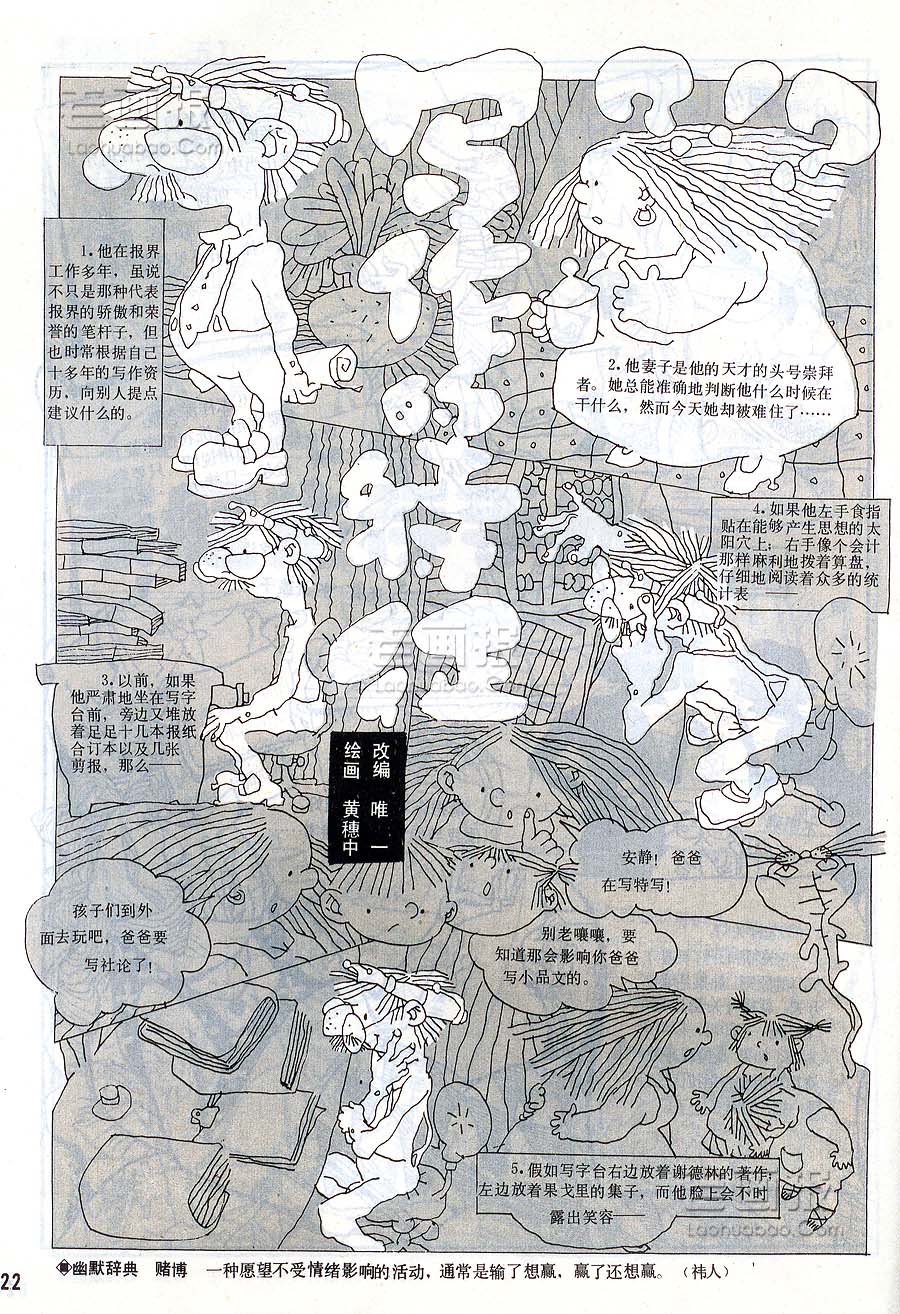 老画报
Laohuabao.Com
1.他在报界
工作多年，虽说
不只是那种代表
报界的骄傲和荣
誉的笔杆子，但
也时常根据自己
十多年的写作资
历，向别人提点
建议什么的。
2.他妻子是他的天才的头号崇拜
者。她总能准确地判断他什么时候在
干什么，然而今天她却被难住了……
3.以前，如果
他严肃地坐在写字
台前，旁边又堆放
着足足十几本报纸
合订本以及几张
剪报，那么——
4.如果他左手食指
贴在能够产生思想的太
阳穴上；右手像个会计
那样麻利地拨着算盘，
仔细地阅读着众多的统
计表——
老画报
Laohuabao.Com
改编 唯一
绘画 黄穗中
孩子们到外
面去玩吧，爸爸要
写社论了！
安静！爸爸
在写特写！
别老嚷嚷，要
知道那会影响你爸爸
写小品文的。
5.假如写字台右边放着谢德林的著作；
左边放着果戈里的集子，而他脸上会不时
露出笑容——
老画报
Laohuabao.Com
幽默辞典 赌博 一种愿望不受情绪影响的活动，通常是输了想赢，赢了还想赢。（祎人）
22